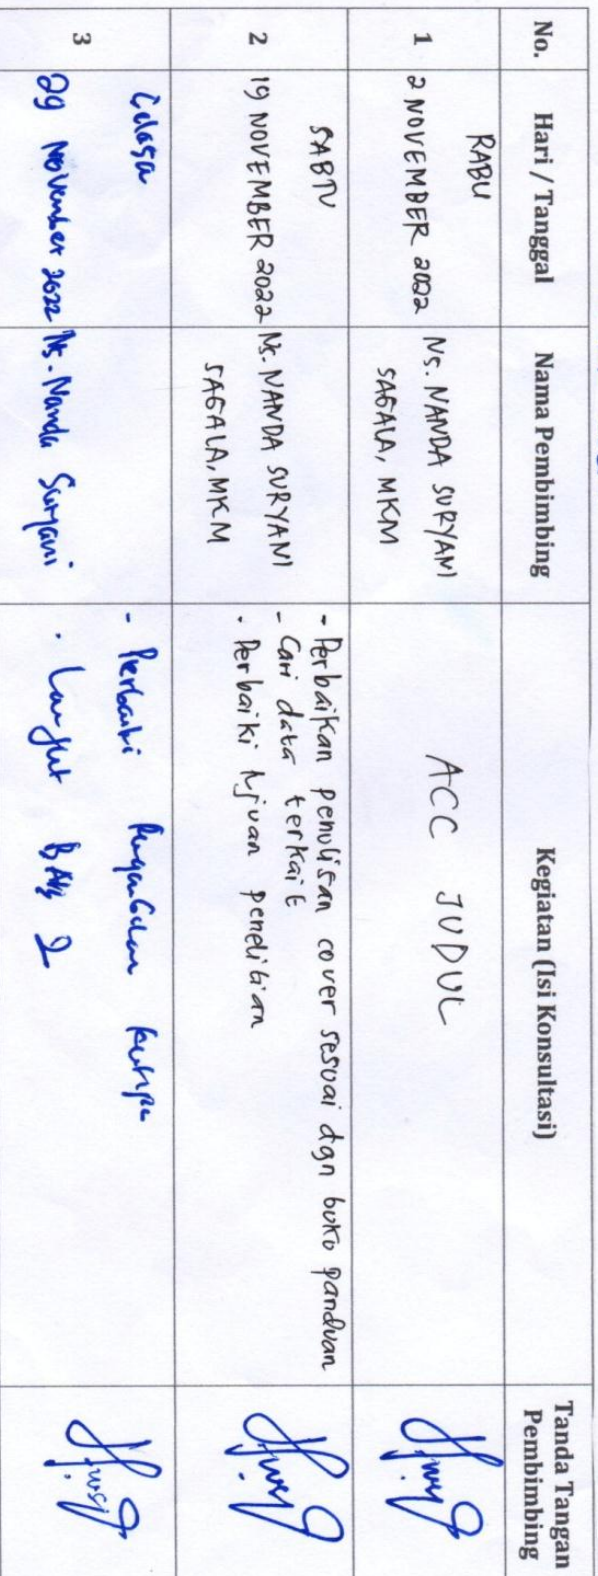 No.
Hari / Tanggal
Nama Pembimbing
Kegiatan (Isi Konsultasi)
Tanda Tangan
Pembimbing
1
RABU
2 NOVEMBER 2022
Ns. NANDA SURYANI
SAGALA, MKM
ACC JUDUL
2
SABTU
19 NOVEMBER 2022
Ns. NANDA SURYANI
SAGALA, MKM
- Perbaikan penulisan cover sesuai dgn buku panduan
- Cari data terkait
- Perbaiki tujuan penelitian
3
Selasa
29 November 2022
Ns. Nanda Suryani
- Perbaiki
- Lanjut BAB 2